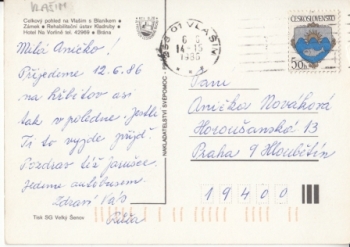 Celkový pohled na Vlašim s Blaníkem
Zámek • Rehabilitační ústav Kladruby
Hotel Na Vorlině tel. 43989 • Brána
Milá Aničko!
Přijedeme 12.6.86
na hřbitov asi
tak v poledne. Jestli
Ti to vyjde přijď
Pozdrav též Jaruše
Jedeme autobusem.
Zdraví Vás
NAKLADATELSTVÍ SVÉPOMOC
Tisk SG Velký Šenov
258 01 VLAŠIM
14-15
1986
ČESKOSLOVENSKO
50h
Paní
Anička Nováková
Horoušanská 13
Praha 9 Hloubětín
19400